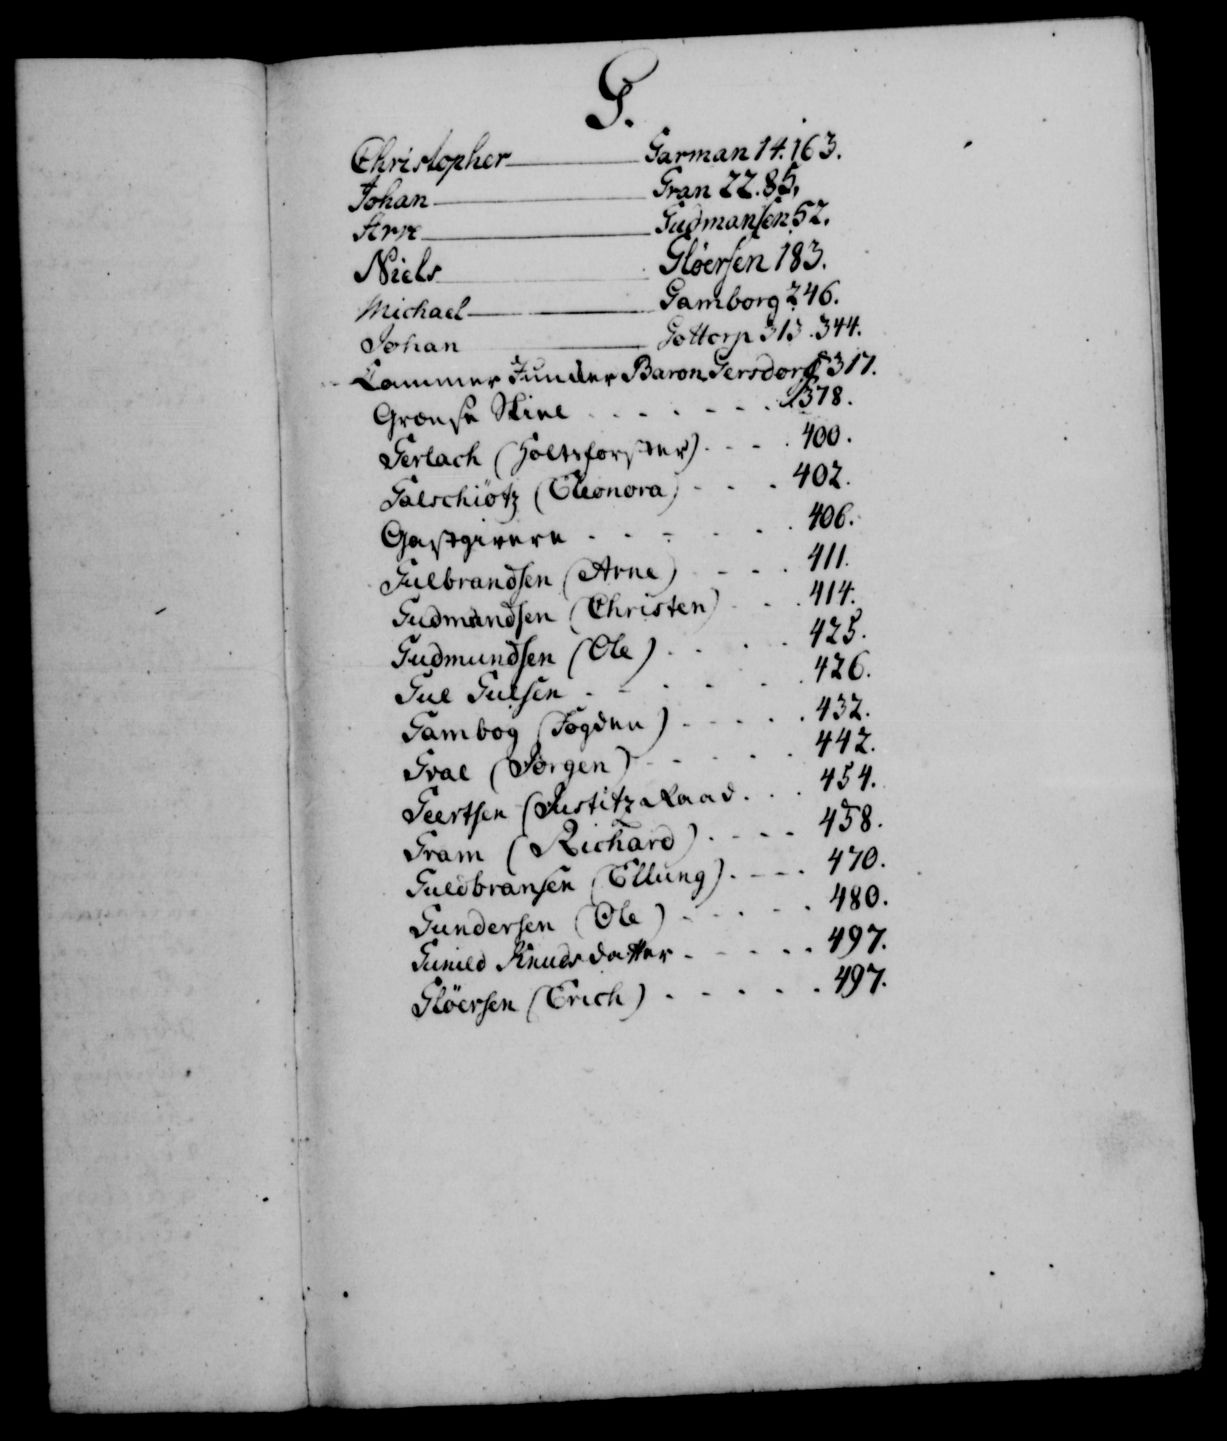 G.
Christopher Garman 14. 163.
Johan Gran 22. 85.
Arne Gudmansen 52.
Niels Gløersen 183.
Michael Gamborg 246.
Johan Gottorp 313. 344.
Cammer Juncker Baron Gersdorf 317.
Grænse Skiel . . . . . . . 378.
Gerlach (Holtzforster) . . . . 400.
Galschiötz (Eleonora) . . . 402.
Gastgivere . . . . . . 406.
Gulbrandsen (Arne) . . . 411.
Gudmandsen (Christen) . . . 414.
Gudmundsen (Ole) . . . . 425.
Gul Gulsen . . . . . . 426.
Gambog (Fogden) . . . . . 432.
Graae (Jørgen) . . . . . 442.
Geertsen (Justitz Raad . . . 454.
Gram (Richard) . . . . 458.
Guldbransen (Ellung) . . . . 470.
Gundersen (Ole) . . . . . 480.
Gunild Knudsdatter . . . . . 497.
Glöersen (Erich) . . . . . 497.